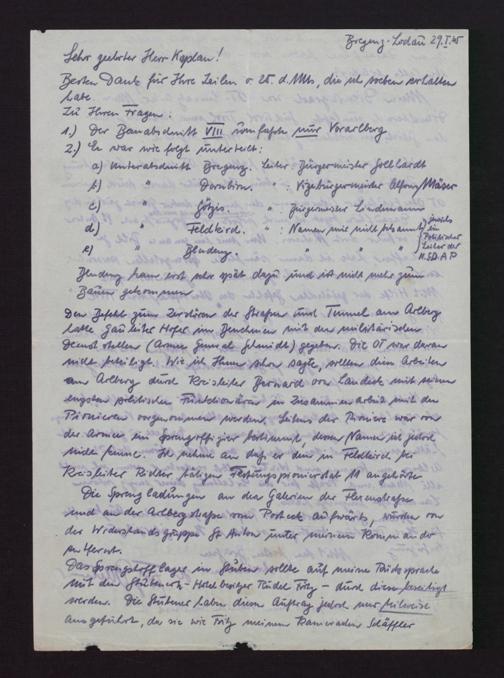 Bregenz-Lochau 29.I.45
Sehr geehrter Herr Kaplan!
Besten Dank für Ihre Zeilen v. 25. d. Mts, die ich soeben erhalten
habe.
Zu Ihren Fragen:
1.) Der Bauabschnitt VIII umfasste nur Vorarlberg
2.) Er war wie folgt unterteilt:
a) Unterabschnitt Bregenz. Leiter: Bürgermeister
b) " Dornbirn. " : Vizebürgermeister Alfons Mäser
c) " Götzis. " : Bürgermeister Lendemann
d) " Feldkirch. " : Namen mir nicht bekannt
e) " Bludenz. " "
jeweils ein Politischer Leiter der N.S.D.A.P
Bludenz kam erst sehr spät dazu und ist nicht mehr zum
Bauen gekommen
Den Befehl zum Zerstören der Strassen und Tunnel am Arlberg
hatte Gauleiter Hofer im Benehmen mit den militärischen
Dienststellen (Armee General Schmidt) gegeben. Die OT war daran
nicht beteiligt. Wie ich Ihnen schon sagte, sollten diese Arbeiten
am Arlberg durch Kreisleiter Bernard von Landeck mit seinen
engsten politischen Funktionären in Zusammenarbeit mit den
Pionieren vorgenommen werden. Seitens der Pioniere war von
der Armee ein Sprengoffizier bestimmt, deren Namen ich jedoch
nicht kenne. Ich nehme an daß er den in Feldkirch bei
Kreisleiter Richter tätigen Festungspionierstab 11 angehörte.
Die Sprengladungen an den Galerien der Flexenstrasse
und an der Arlbergstrasse vom Posteck aufwärts, wurden von
der Widerstandsgruppe St Anton unter meinem Kommando
entfernt.
Das Sprengstofflager in Stuben sollte auf meine Rücksprache
mit den Stubenern - Hotelbesitzer Fritz - durch diese beseitigt
werden. Die Stubener haben diesen Auftrag jedoch nur teilweise
ausgeführt, da sie wie Fritz meinem Kameraden Schäffler